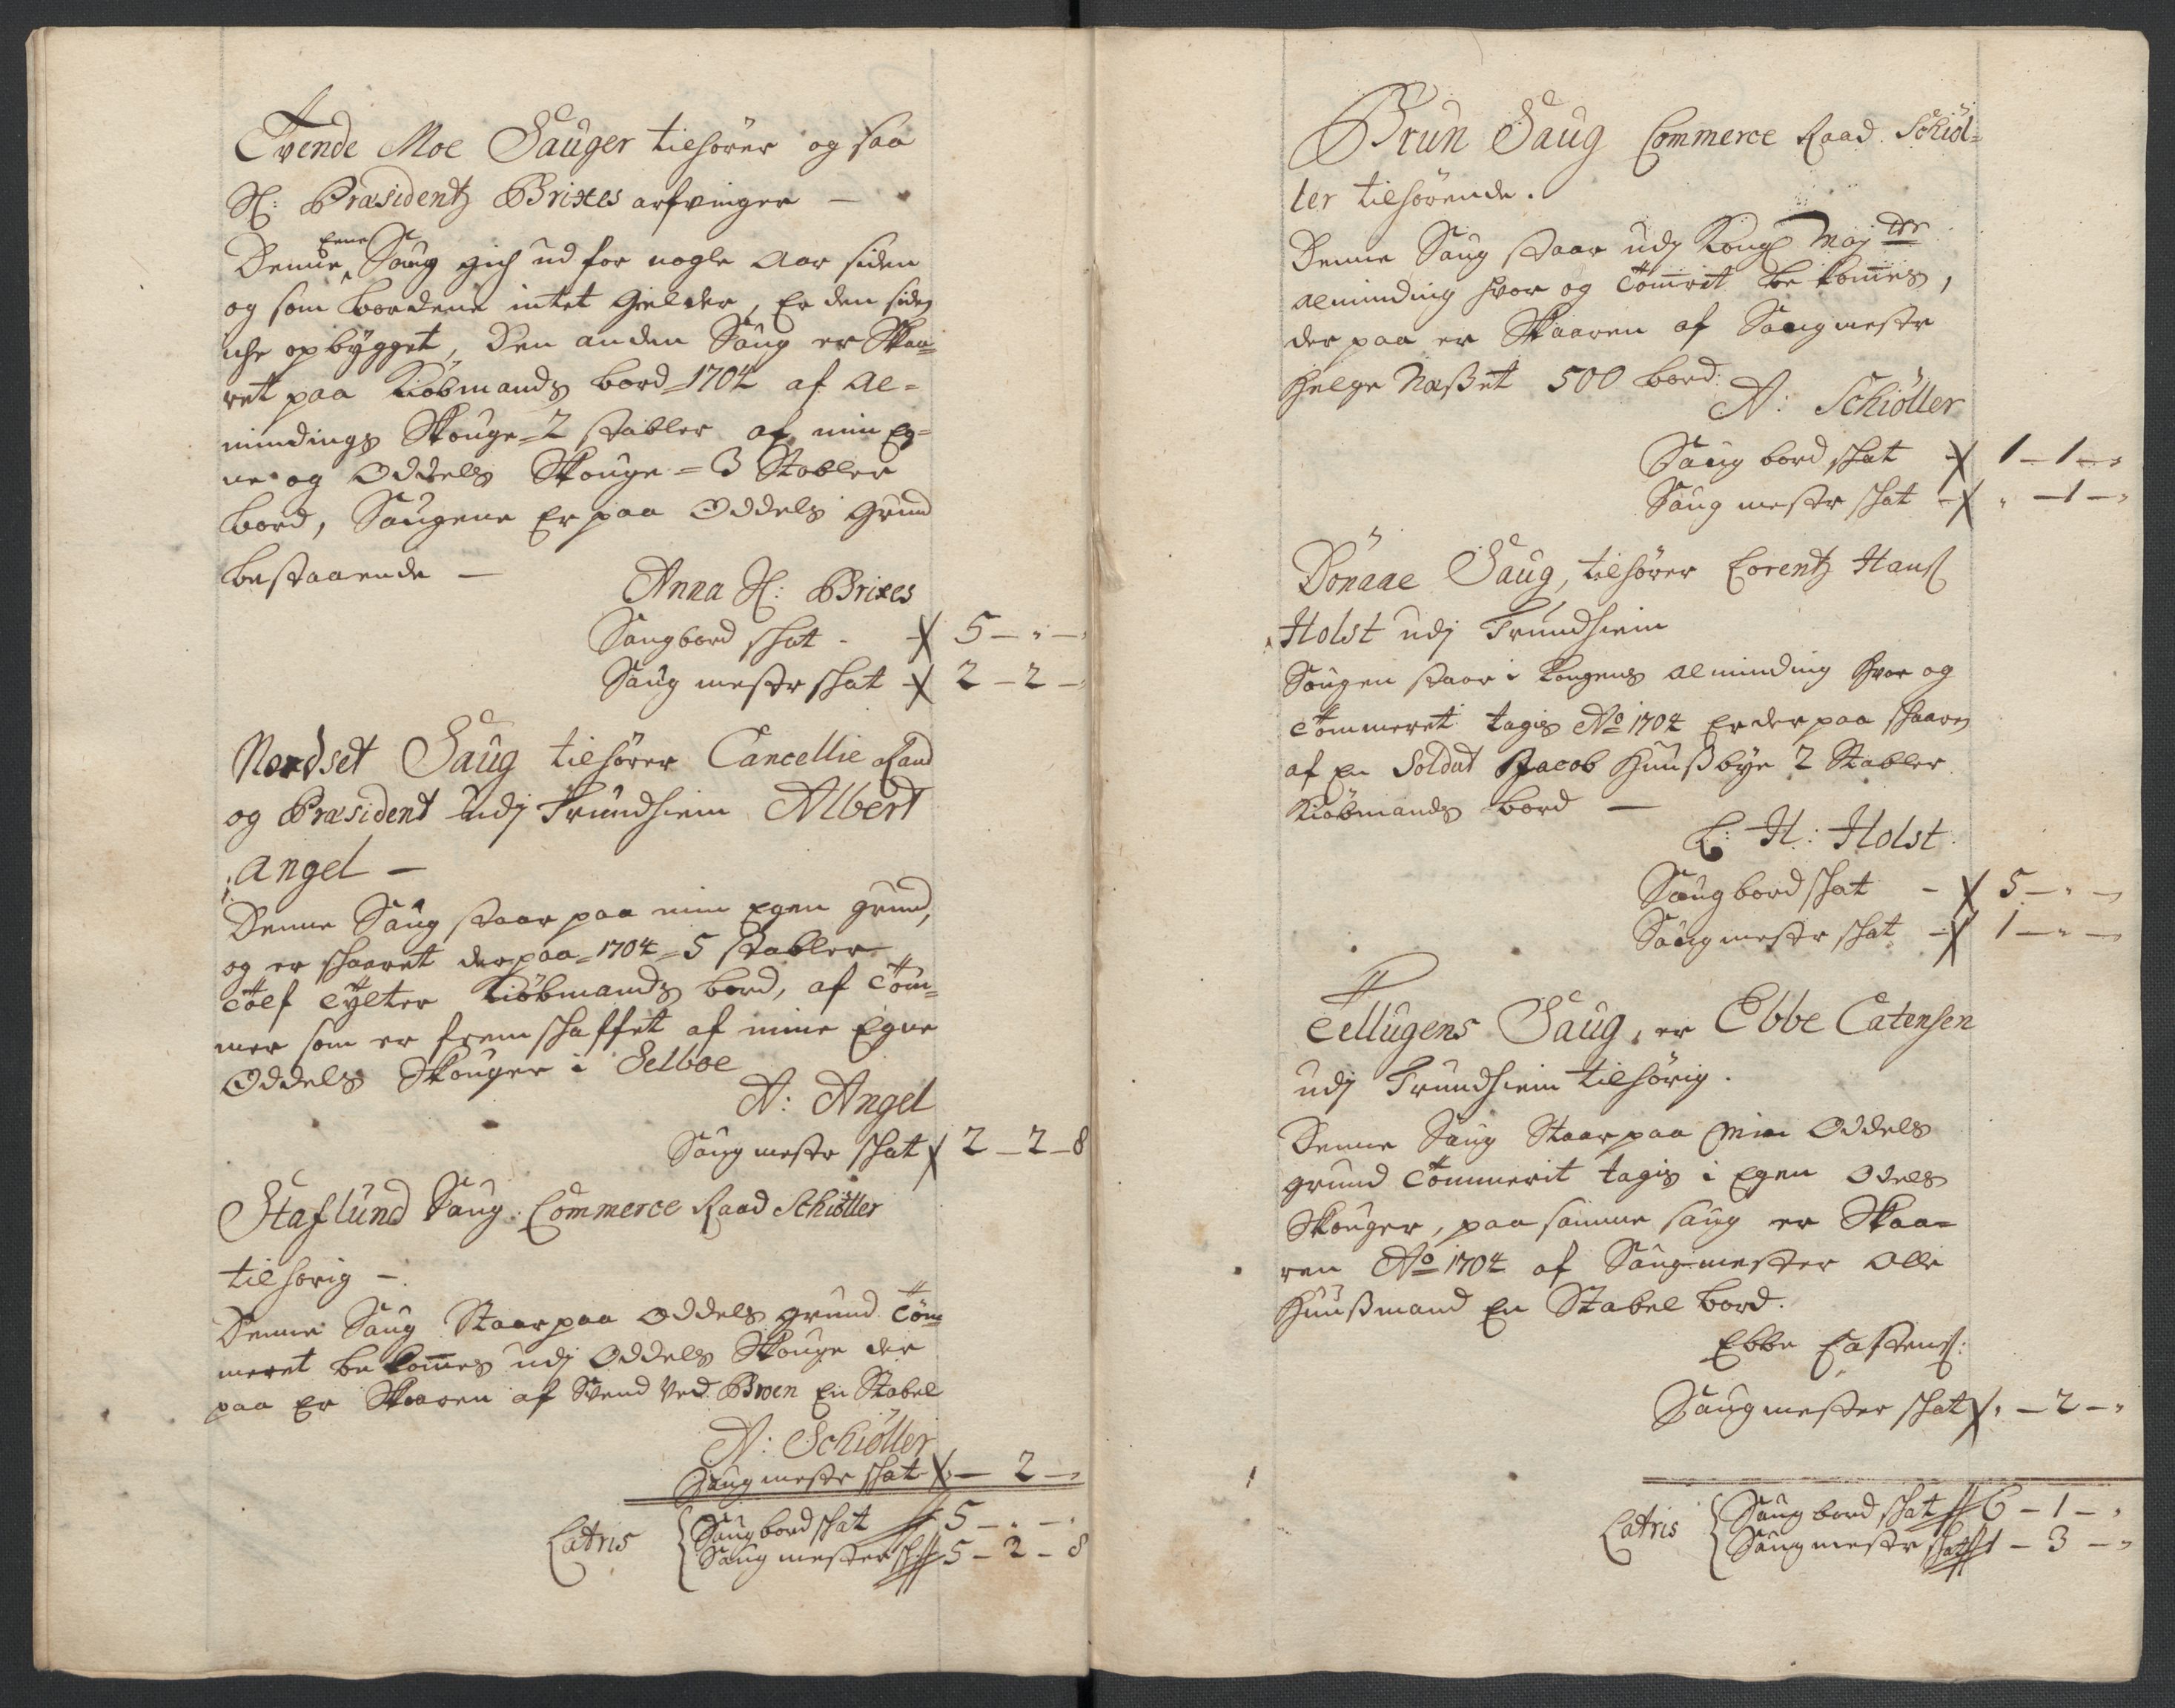 Tvende Moe Sauger tilhører og saa
Sl: Præsidentz Brixes arfvinger —
Denne Eene Saug gich ud for nogle Aar siden
og som bordene intet Gielder, Er den siden
iche opbygget, Den anden Saug er Skaa=
ret paa Kiøbmands bord 1704 af Al=
mindings Skouge = 2 stabler af min Eg=
ne og Oddels Skouge = 3 Stabler
bord, Saugene Er paa Oddels Grund
bestaaende —
Anna Sl: Brixes
Saugbord schat - 5 – " –
Saug mestr schat - 2 – 2 –
Nordset Saug tilhører Cancellie Raad
og Præsident udj Trundhiem Albert
Angel —
Denne Saug staar paa min Egen grund,
og er schaaret der paa = 1704 = 5 stabler
Tolf Tylter Kiøbmands bord, af Tøm=
mer som er frem schaffet af mine Egne
Oddels Skouger i Selboe
A: Angel
Saug mestr schat 2 – 2 – 8
Staflund Saug: Commerce Raad Schiøller
tilhørig –.
Denne Saug Staar paa Oddels grund Tøm
meret bekomes udj Oddels Skouge der
paa Er Skaaren af Svend Ved Broen En Stabel
A: Schiøller
Saug mestr schat " – 2 – "
Latris { Saugbord schat 5 – " – "
Saug mester sch: 5 – 2 – 8
Brun Saug Commerce Raad Schiøl=
ler tilhørende.
Denne Saug staar udj Kongl Maj:ter
alminding hvor og Tømrit be komes,
der paa er Skaaren af Saugmestr
Helge Næsset 500 bord:
A: Schiøller
Saug bord schat 1 – 1 – "
Saug mestr schat - " – 1 – "
Dønaae Saug, tilhører Lorentz Hans
Holst udj Trundhiem
Saugen staar i Kongens alminding hvor og
Tømmeret tagis Ao 1704 Er der paa schaaren
af En Soldat Jacob Huusbye 2 Stabler
Kiøbmands bord —
L: H: Holst
Saugbord schat - 5 – " –
Saugmestr schat - 1 – " –
Tellugens Saug, er Ebbe Catensen
udj Trundhiem tilhørig.
Denne Saug Staar paa Min Oddels
grund Tømmerit tagis i Egen Odels
Skouger, paa samme saug er Skaa=
ren Ao 1704 af Saugmester Olle
Huusmand En Stabel bord.
Ebbe Castens:
Saugmester schat " – 2 – "
Latris { Saug bord schat 6 – 1 – "
Saugmestr schat 1 – 3 – "